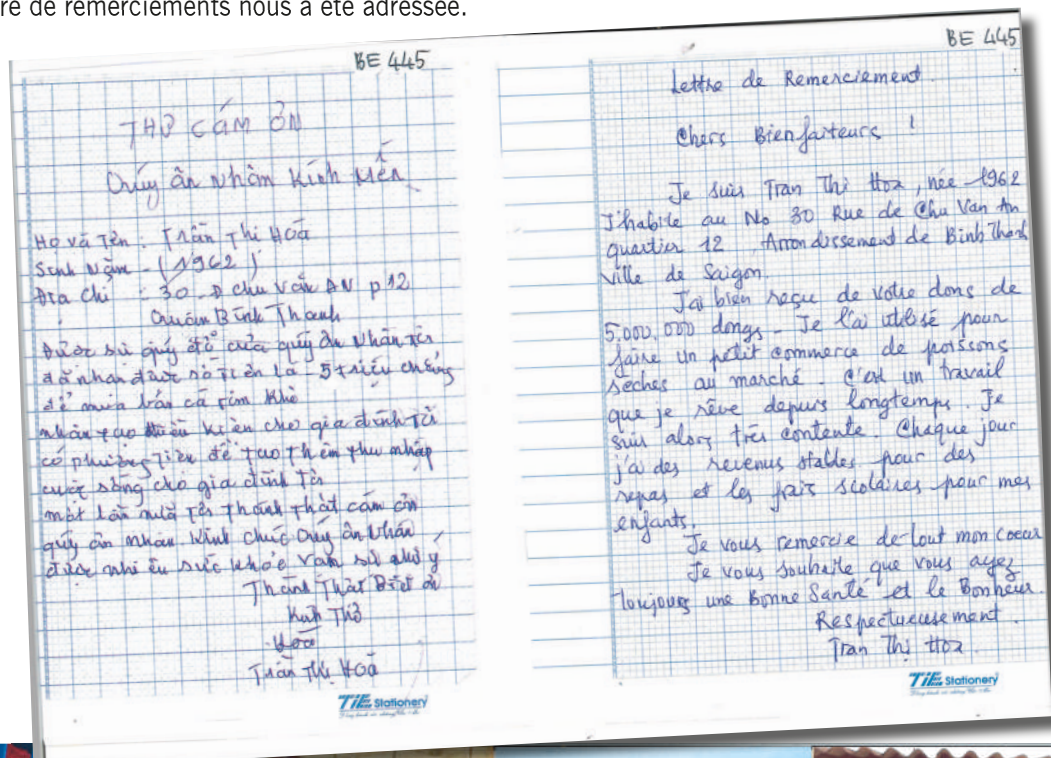 re de remerciements nous a été adressée.
BE 445
THƯ CÁM ƠN
Qúy ân nhân Kính Mến
Họ và Tên : Trần Thi Hoà
Sinh Năm - (1962)
Địa Chỉ : 30. D chu Văn AN p 12
Quân Bình Thanh
Được sư giúp đỡ của quý ân Nhân Tôi
đã nhân được số Tiền là 5 triệu
để mua bán cá Khô
cho gia đình Tôi
có phương Tiên để Tạo Thêm thu nhâp
cuôc sống cho gia đình Tôi
môt lần nữa Tôi Thành Thât cám ơn
quý ân nhân Kính chúc Quý ân Nhân
được nhiều sức khỏe Van sư như ý
Thành Thât Biết ơn
Kính Thơ
Hoà
Trần Thi Hoà
TiE Stationery
BE 445
Lettre de Remerciement.
Chers Bienfaiteurs !
Je suis Tran Thi Hoa, née 1962
J'habite au No 30 Rue de Chu Van An
quartier 12 Arrondissement de Binh Thanh
Ville de Saigon.
J'ai bien reçu de votre dons de
5.000.000 dongs. Je l'ai utilisé pour
faire un petit commerce de poissons
séches au marché. C'est un travail
que je rêve depuis longtemps. Je
suis alors très contente. Chaque jour
j'ai des revenus stables pour des
repas et les frais scolaires pour mes
enfants.
Je vous remercie de tout mon coeur
Je vous souhaite que vous ayez
Toujours une Bonne Santé et le Bonheur.
Respectueusement.
Tran Thi Hoa.
TiE Stationery